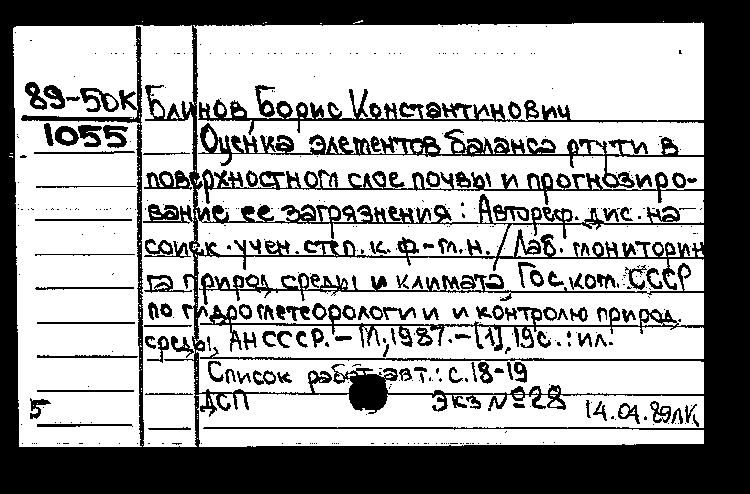 89-50К
1055
Блинов, Борис Константинович
Оценка элементов баланса ртути в
поверхностном слое почвы и прогнозиро-
вание ее загрязнения : Автореф. дис. на
соиск. учен. степ. к. ф.-м.н. / Лаб. мониторин
га природ. среды и климата Гос. ком. СССР
по гидрометеорологии и контролю природ.
среды, АН СССР. - М., 1987. - [1], 19с. : ил.
Список работ авт.: с.18-19
ДСП Экз №28 14.04.89
5